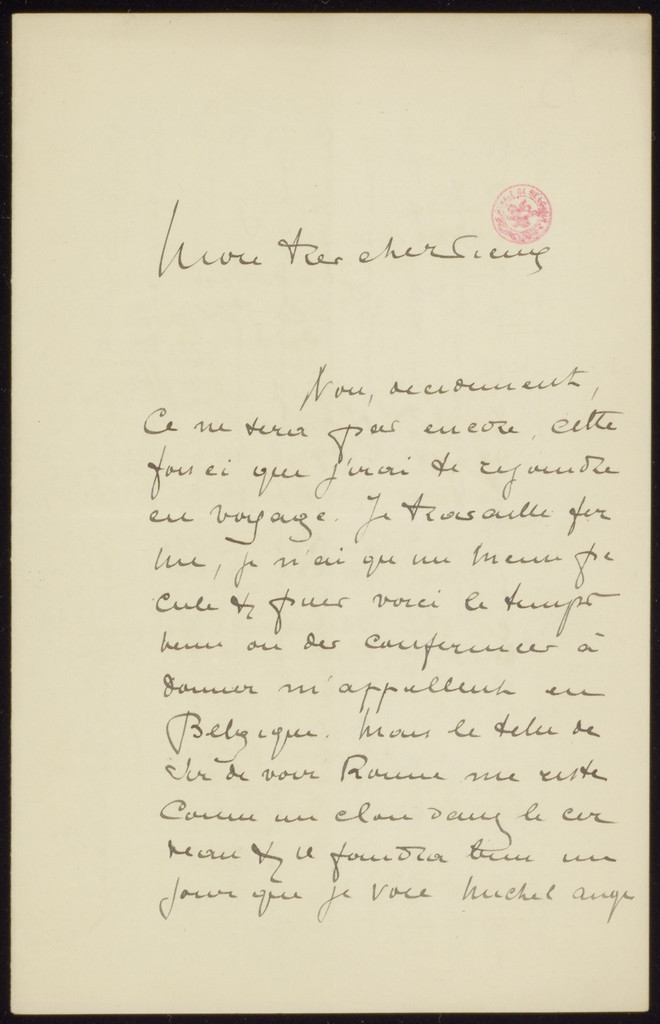 Mon très cher
Non, décidément,
Ce ne sera pas encore, cette
fois ci que j'irai te rejoindre
en voyage. Je travaille fer
me, je n'ai qu'un menu pé
cule & puis voici le temps
venu où des conférences à
donner m'appellent en
Belgique. Mais le de
sir de voir Rome me reste
Comme un clou dans le cer
veau & il faudra bien un
jour que je voie Michel ange